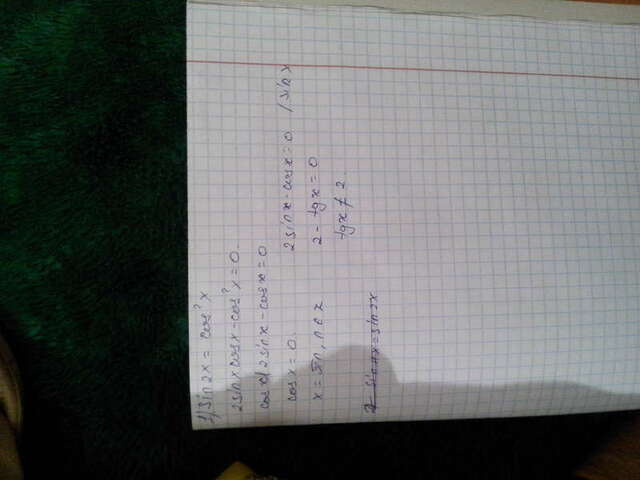 1) Sin2x = cos²x
2sinxcosx-cos²x=0.
cosx(2sinx-cosx=0
cosx=0. 2sinx-cosx=0 /sinx
x=πn, n∈z 2-tgx=0
tgx≠2
2 sin4x=sin2x